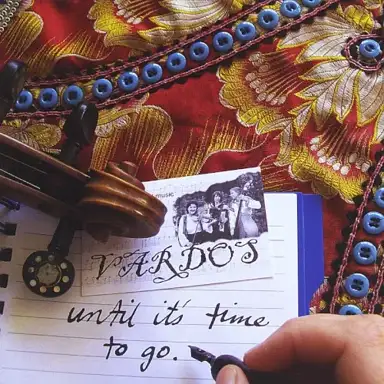 MUSIC
VARDOS
until it's time
to go.